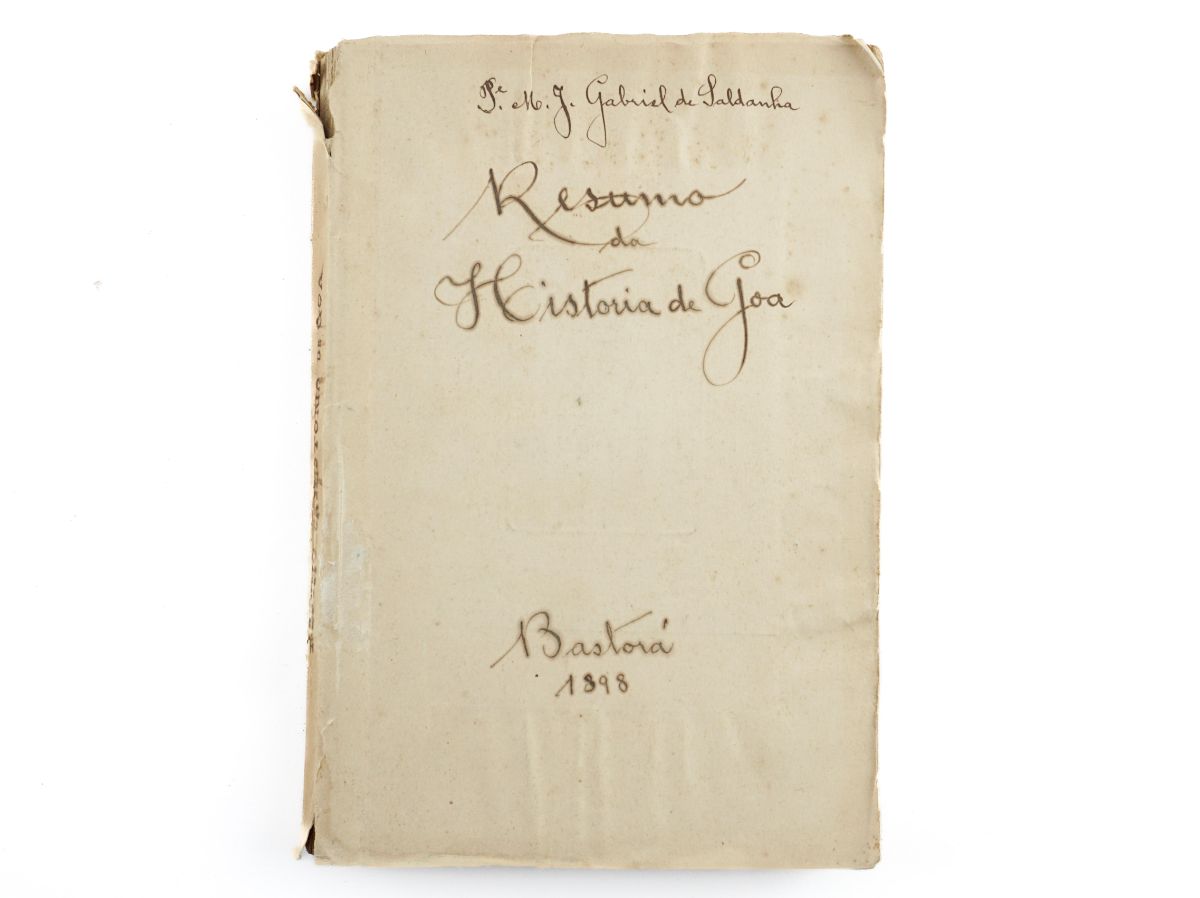 Pe. M. J. Gabriel de Saldanha
Resumo
da
Historia de Goa
Bastorá
1898
HISTORIA DE GOA